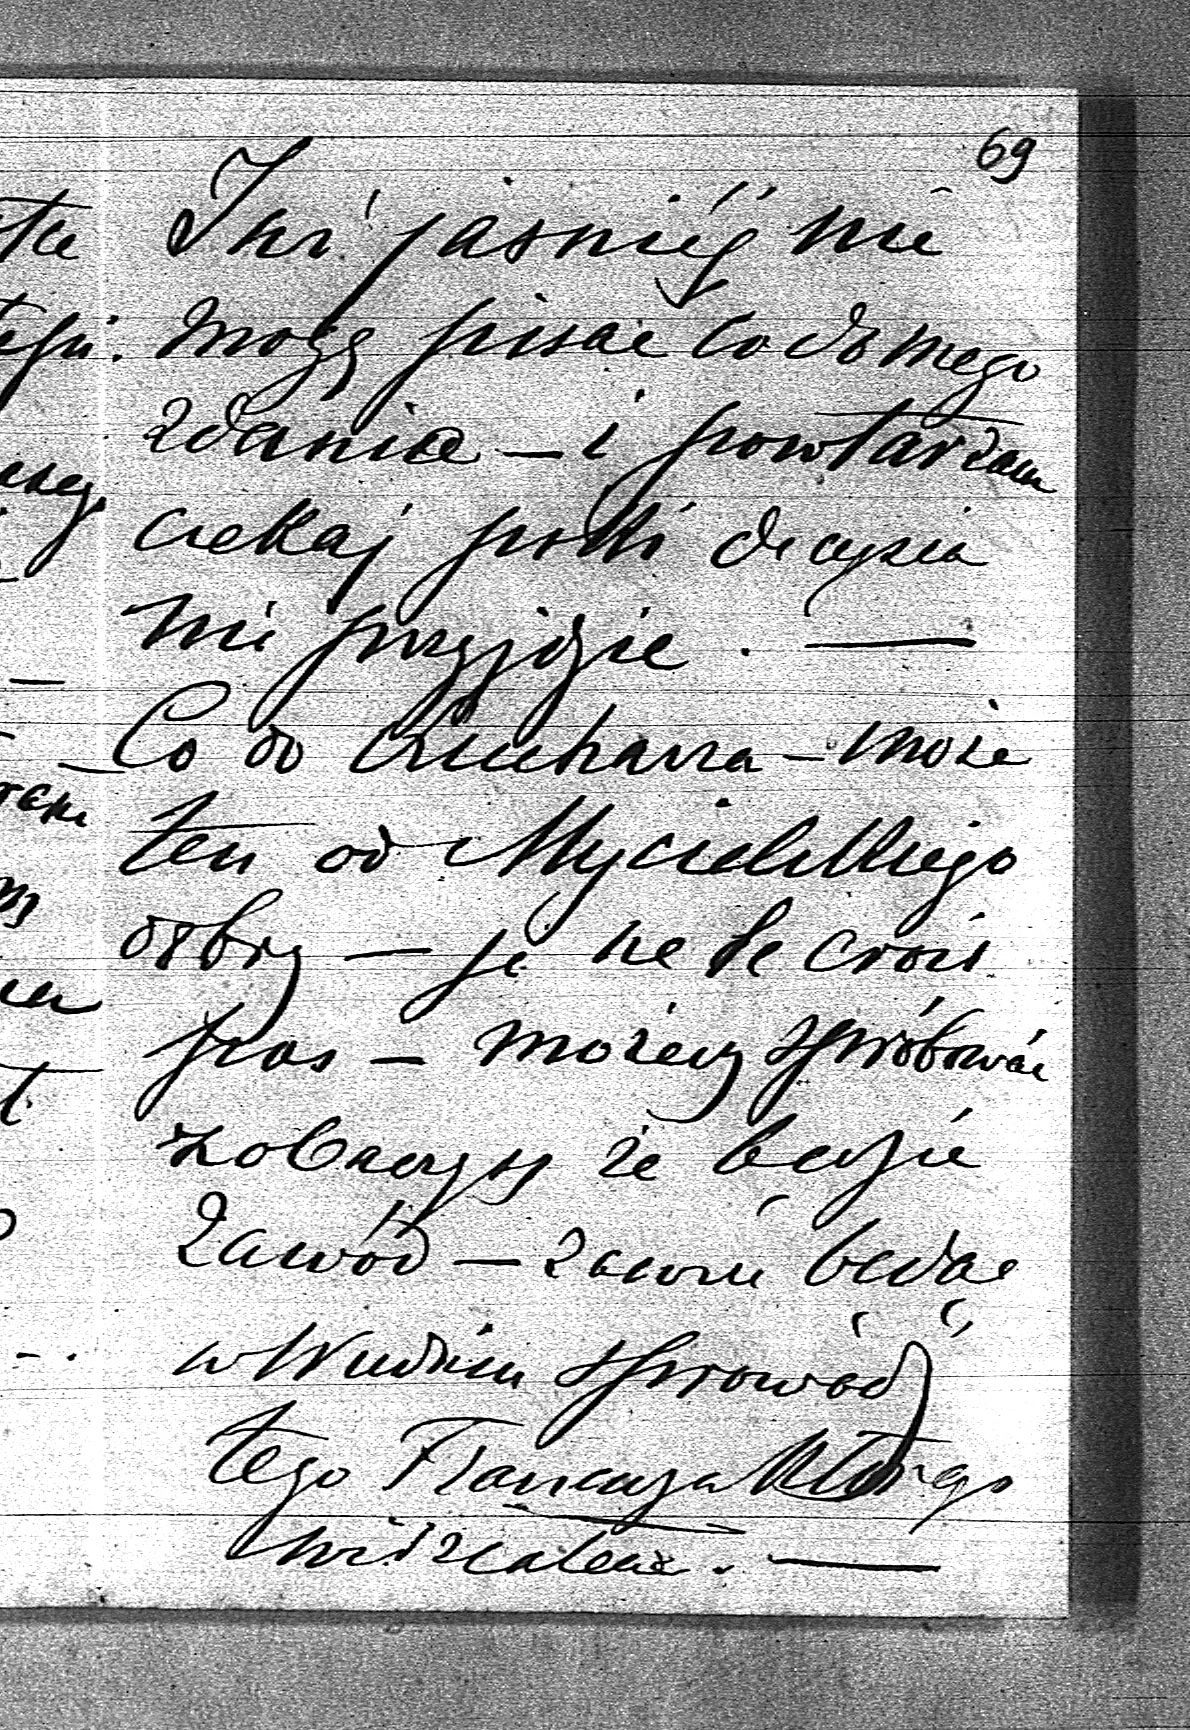 69
jaśniéj nie
mogę pisać co do mego
zdania — i powtarzam
czekaj póki decyzia
nie przyjdzie. —
Co do Kucharza — może
ten od Mycielskiego
dobry — je ne le crois
pas — możesz spróbować
zobaczysz że będzie
zawód — zawsze będąc
w Wiedniu sprowadź
tego Francuza którego
widziałem. —